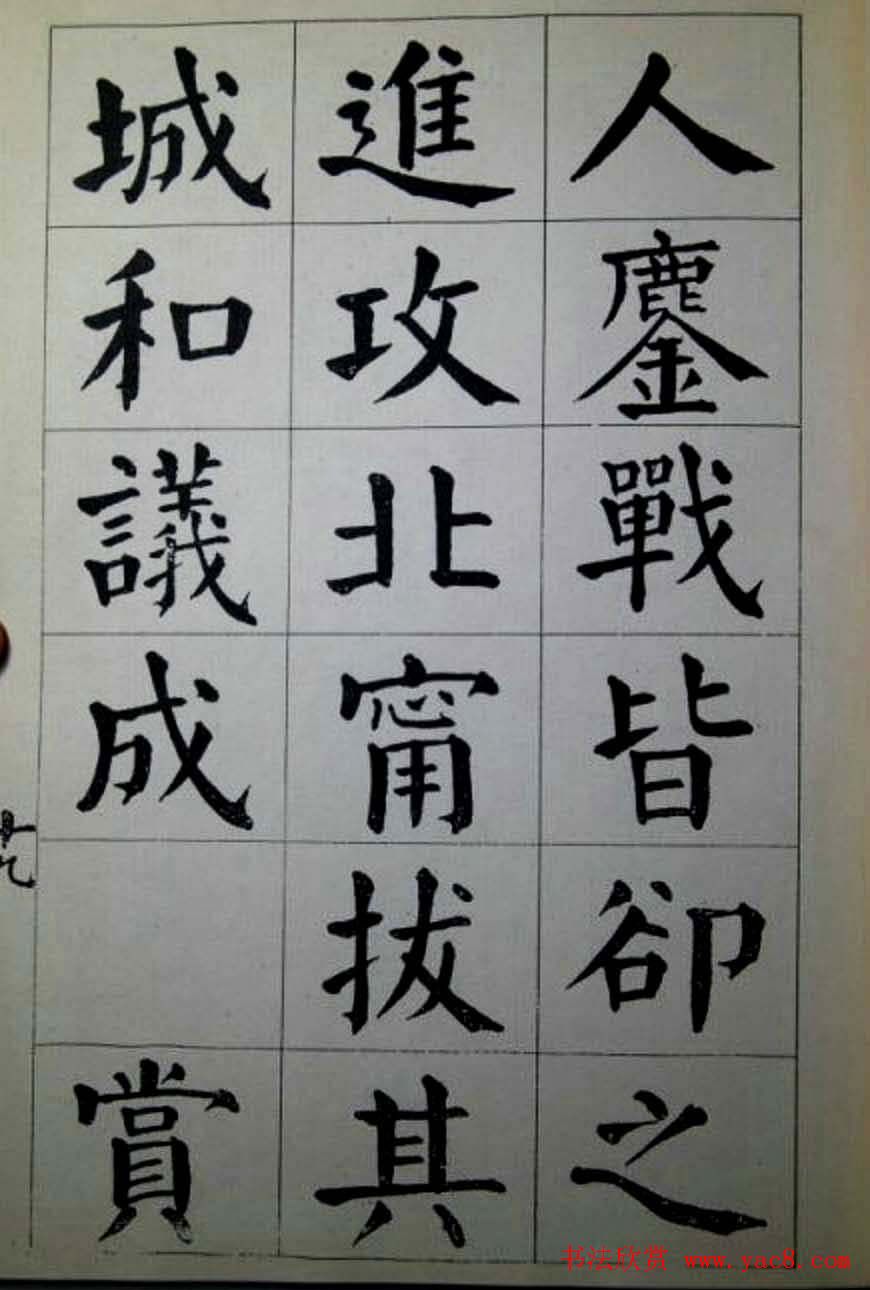 人鏖戰皆卻之
進攻北甯拔其
城和議成 賞
书法欣赏 www.yac8.com